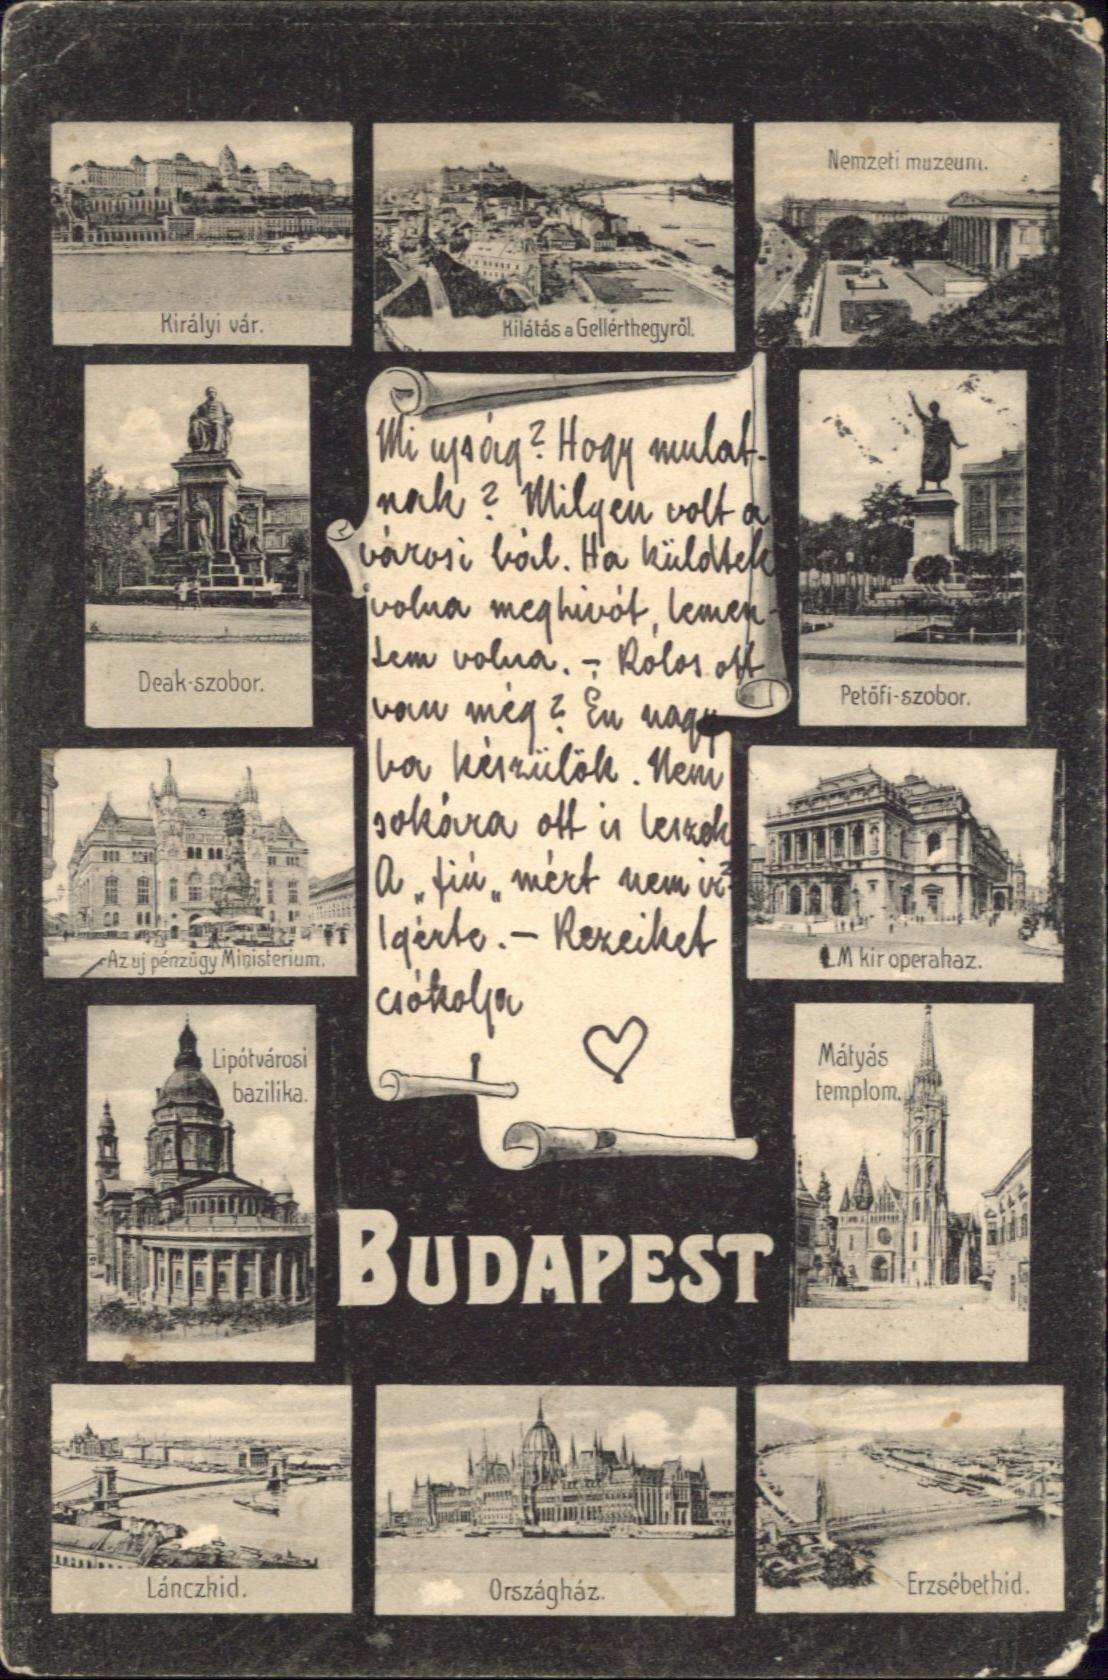 Királyi vár.
Kilátás a Gellérthegyről.
Nemzeti muzeum.
Deak-szobor.
Mi ujság? Hogy mulat-
nak? Milyen volt a
városi bál. Ha küldtek
volna meghivót, lemen-
tem volna. - Rólos ott
van még? Én nagy
ba készülök. Nem
sokára ott is leszek
A „fiú„ mért nem ir?
Igérte. - Kezeiket
csókolja
Petőfi-szobor.
Az uj pénzügy Ministerium.
M kir operahaz.
Lipótvárosi
bazilika.
Mátyás
templom.
BUDAPEST
Lánczhid.
Országház.
Erzsébethid.